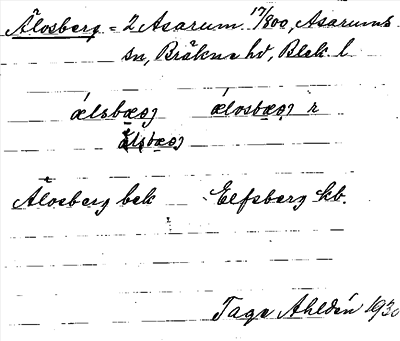 Älosberg = 2 Asarum 17/800, Asarums
sn, Bräkne hd, Blek l.
álsbæǫj álosbæǫj r
álsbæǫj
Älosberg bek Elfsberg kb.
Tage Ahldén 1930